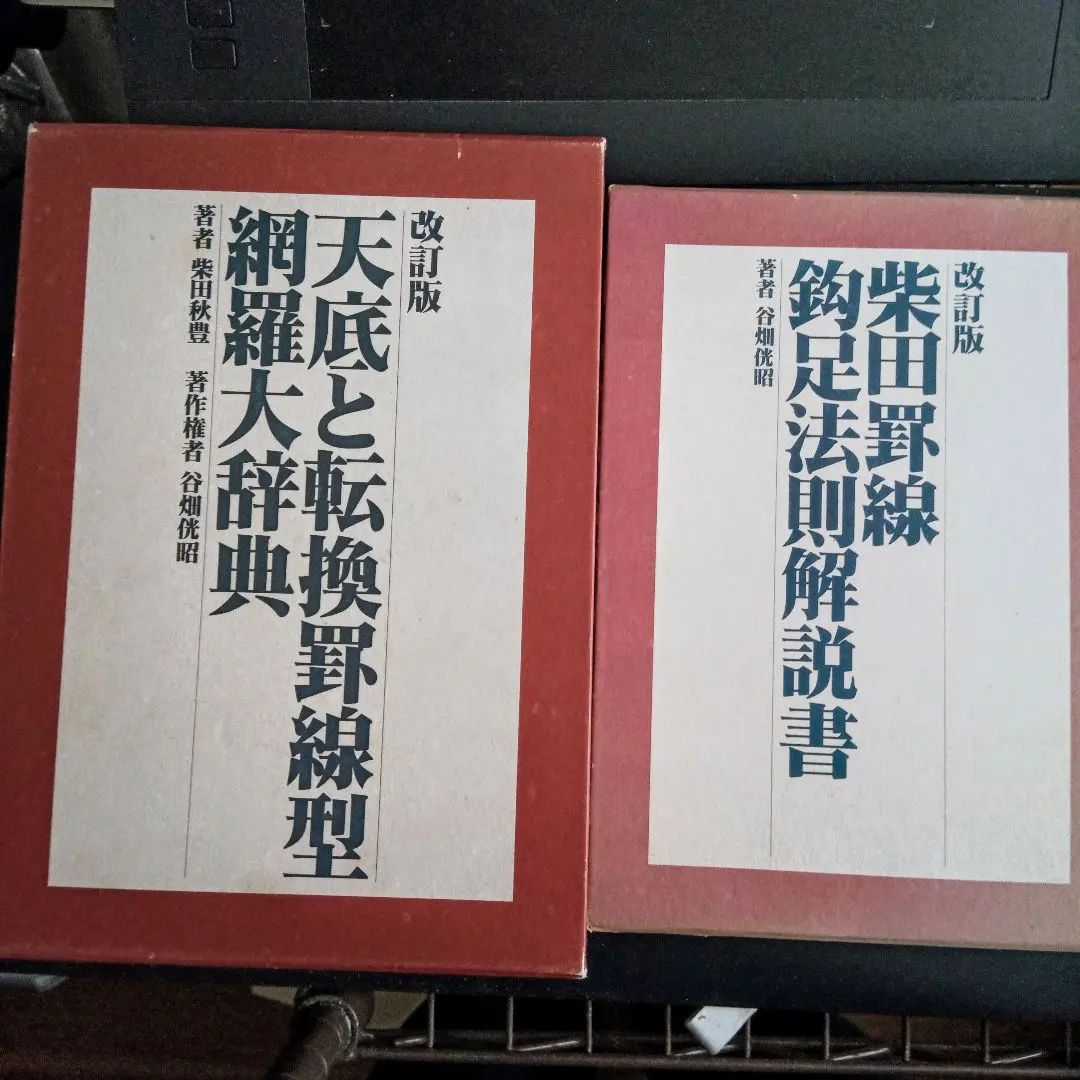 改訂版
天底と転換罫線型
網羅大辞典
著者 柴田秋豊 著作権者 谷畑侊昭
改訂版
柴田罫線
鈎足法則解説書
著者 谷畑侊昭